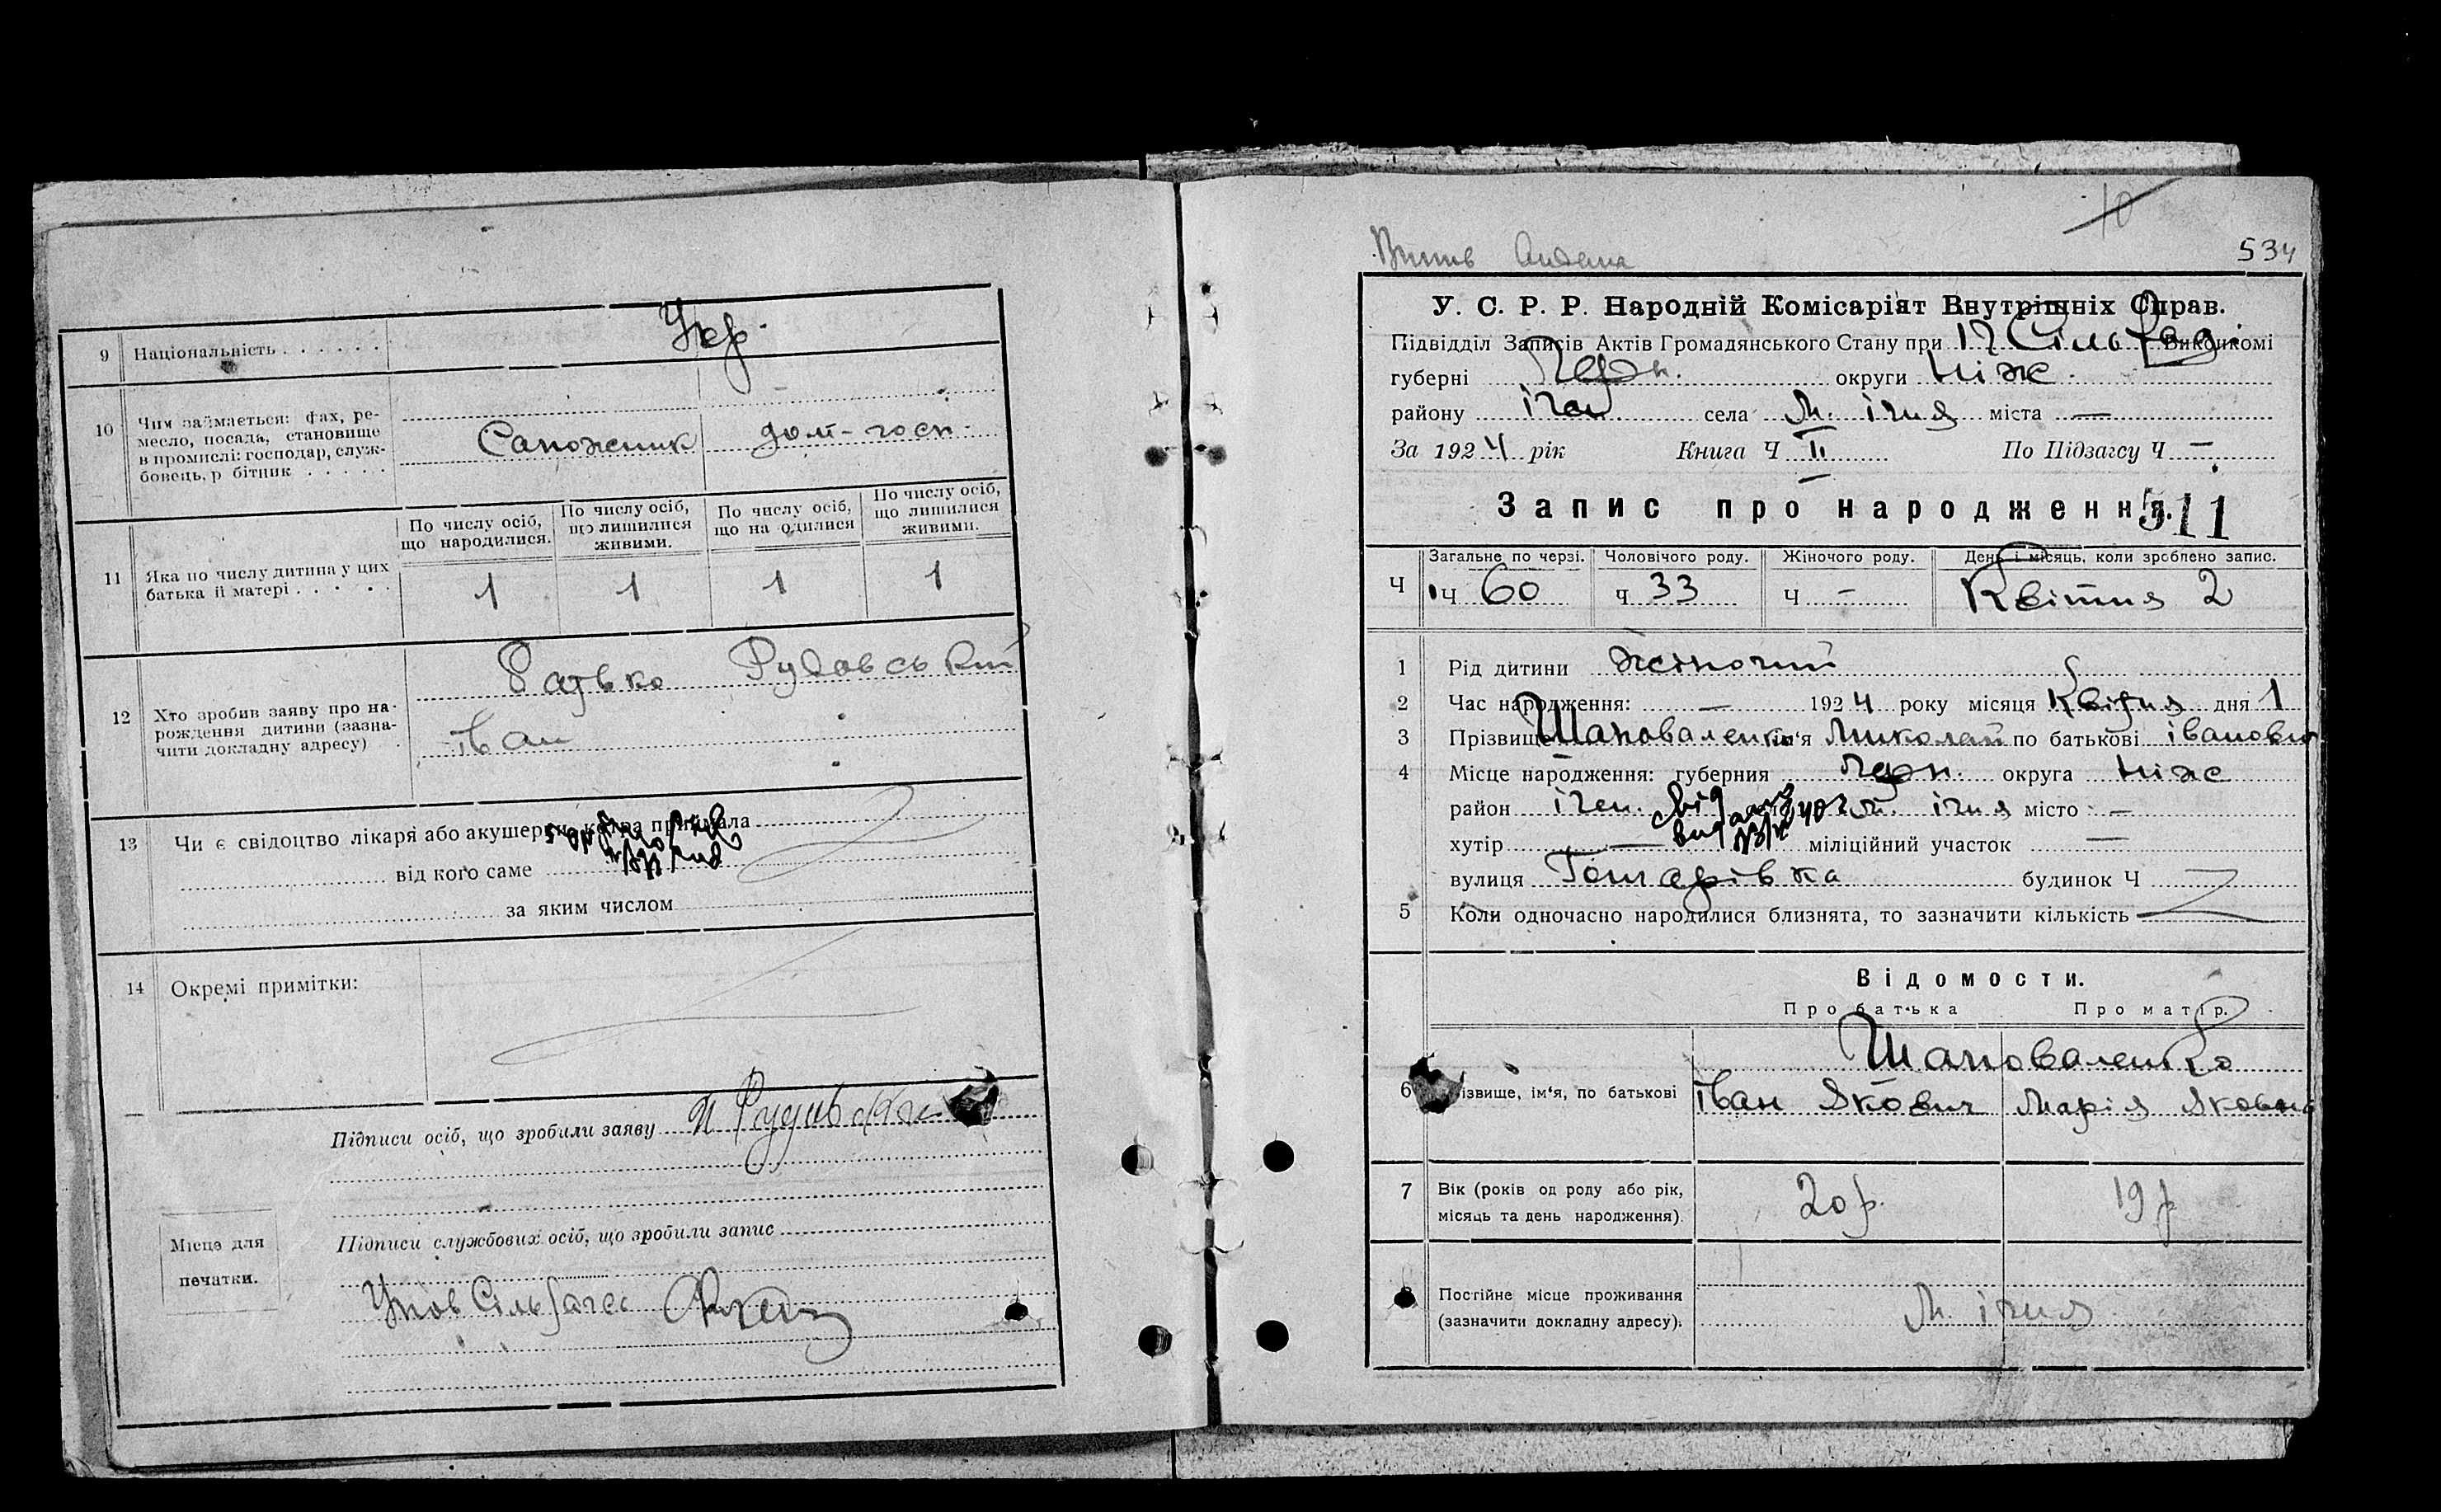 9 Національність . . . . . . Укр.
10 Чим займається: фах, ре-
месло, посада, становище
в промислі: господар, служ-
бовець, р бітник . . . . .
Сапожник дом-госп.
По числу осіб, що народилися. По числу осіб, що лишилися живими. По числу осіб, що на одилися По числу осіб, що лишилися живими.
11 Яка по числу дитина у цих
батька й матері . . . . .
1 1 1 1
12 Хто зробив заяву про на-
рождення дитини (зазна-
чити докладну адресу) .
Батько Рудовський
Іван
13 Чи є свідоцтво лікаря або акушерки, котра приймала
від кого саме
за яким числом
14 Окремі примітки:
Підписи осіб, що зробили заяву И
Місце для
печатки.
Підписи службових осіб, що зробили запис
10
534
У. С. Р. Р. Народній Комісаріят Внутрішніх Справ.
Підвідділ Записів Актів Громадянського Стану при Виконкомі
губерні округи Ніж.
району Ічен села м. Ічня міста —
За 1924 рік Книга Ч II По Підзагсу Ч —
Запис про народження.
511
Загальне по черзі. Чоловічого роду. Жіночого роду. День і місяць, коли зроблено запис.
Ч Ч 60 Ч 33 Ч — Квітня 2
1 Рід дитини жіночий
2 Час народження: — 1924 року місяця Квітня дня 1
3 Прізвище Шаповаленко ім'я Миколай по батькові Іванович
4 Місце народження: губерния Черн. округа Ніж
район Ічен. м. Ічня місто —
хутір — міліційний участок —
вулиця Гончарівка будинок Ч
5 Коли одночасно народилися близнята, то зазначити кількість
Відомости.
Про батька Про матір.
Шаповаленко
6 ізвище, ім'я, по батькові Іван Якович Марія Яковна
7 Вік (років од роду або рік,
місяць та день народження).
20 р. 19 р
8 Постійне місце проживання
(зазначити докладну адресу).
м. Ічня